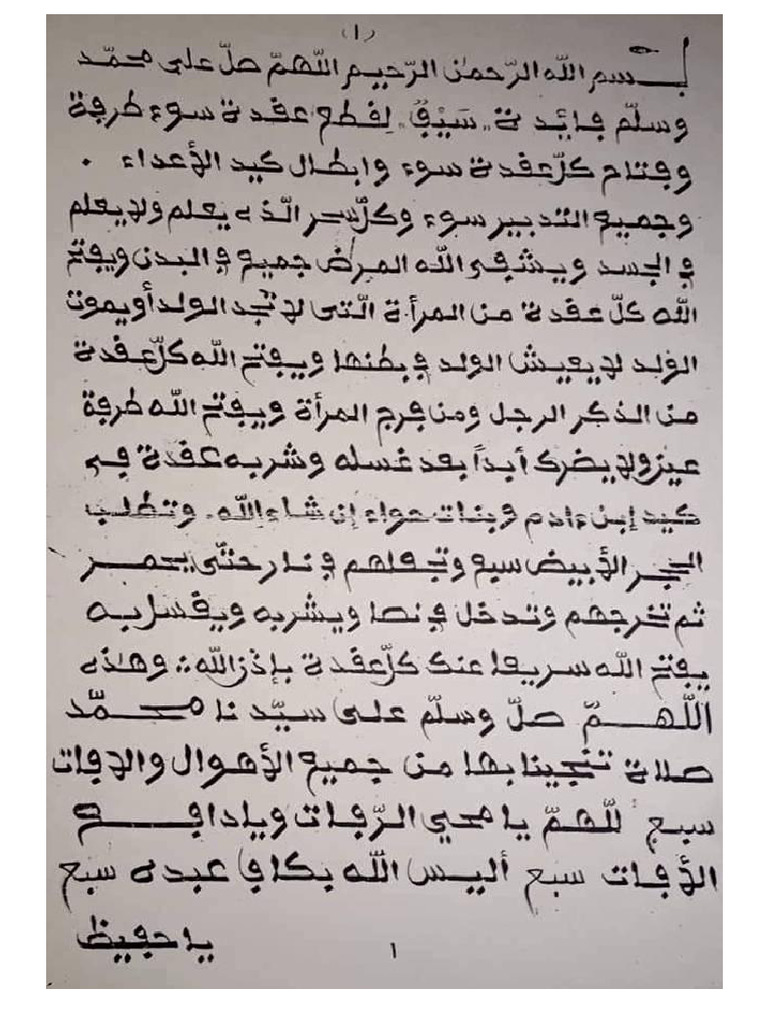 (١)
بسم الله الرّحمن الرّحيم اللّهمّ صلّ على محمّد
وسلّم فائدة "سَيْفٌ" لقطع عقدة سوء طرفة
وفتاح كلّ عقدة سوء وابطال كيد الأعداء .
وجميع التدبير سوء وكلّ سحر الّذي يعلم ولا يعلم
في الجسد ويشفى الله المرض جميع في البدن ويفتح
الله كلّ عقدة من المرأة الّتى لا تجد الولد أو يموت
الولد لا يعيش الولد في بطنها ويفتح الله كلّ عقدة
من الذكر الرجل ومن فرج المرأة ويفتح الله طرفة
عين ولا يضرك أبداً بعد غسله وشربه عقدة في
كيد إبن ءادم وبنات حواء إن شاء الله . وتطلب
الحجر الأبيض سبع وتجعلهم في نار حتّى يحمر
ثم تخرجهم وتدخل في نصا ويشربه ويغسل به
يفتح الله سريعا عنك كلّ عقدة بإذن الله ؞ وهاذه
اللّهمّ صلّ وسلّم على سيّدنا محمّد
صلاة تنجينا بها من جميع الأهوال والافات
سبع اللّهمّ يا محي الرّفات ويا دافع
الأفات سبع أليس الله بكاف عبده سبع
يا حفيظ
١